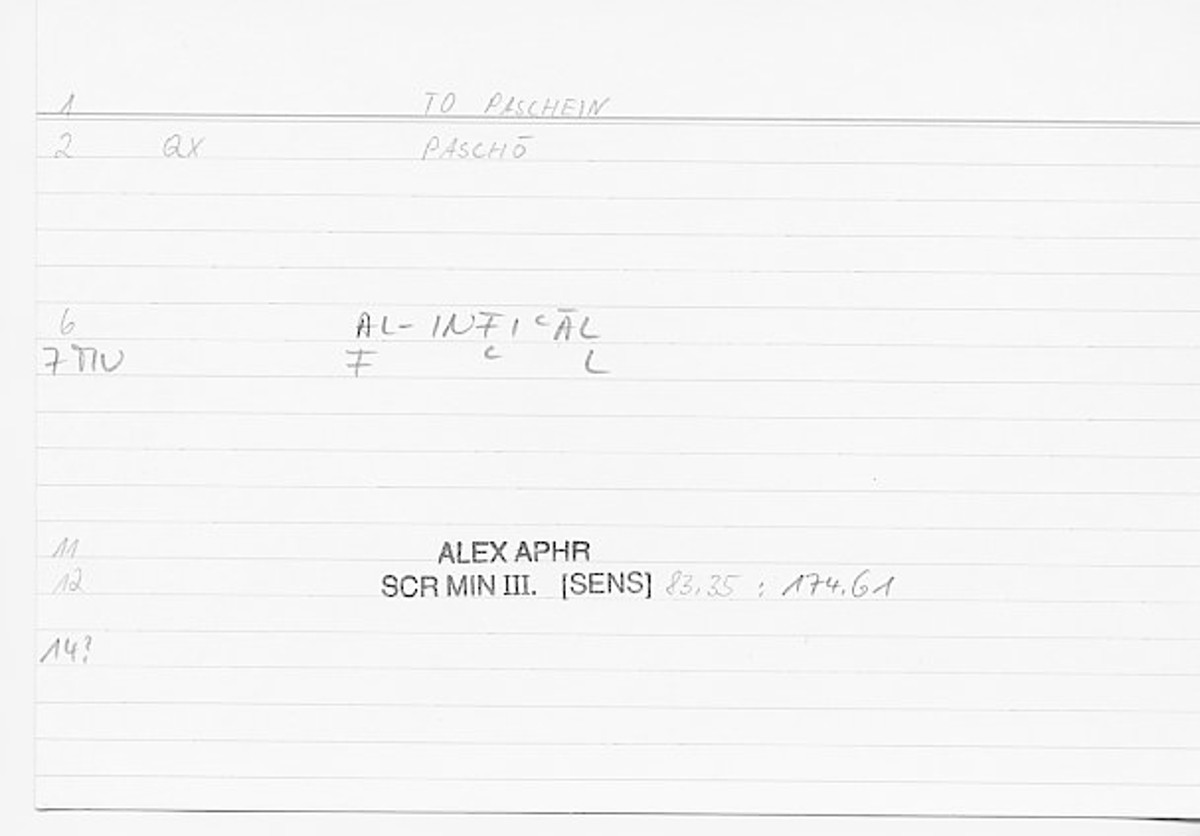 1 TO PASCHEIN
2 QX PASCHŌ
6 AL- INFI ᶜĀL
7 F ᶜ L
11 ALEX APHR
12 SCR MIN III. [SENS] 83.35 : 174.61
14?